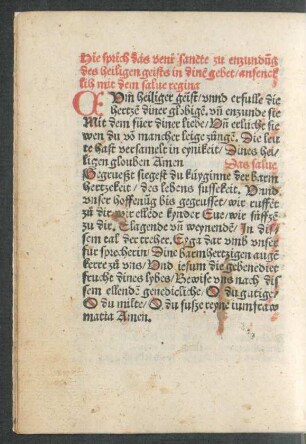 Hie sprich das veni sancte zu enzundūg
des heiligen geists in dinē gebet/
lich mit dem salue regina
Cūm heiliger geist/vnnd erfulle die
hertzē diner globigē. vn̄ enzunde sie
Mit dem füer diner liebe/Vn̄ erlücht sie
wen du vō mancher leige zūngē. Die
hast versamelt in eynikeit/Dines hei/
ligen glouben Amen Das salue
Gegrueßt siegest du küyginne der barm
hertzekeit/des lebens sussekeit. Vnnd
vnser hoffenūg bis gegrusset/wir ruffēt
zū dir wir ellēde kynder Eue/wir süffzē
zū dir. Clagende vn̄ weynendē/In dis/
sem tal der trehēr. Eya dar vmb vnser
für sprecherin/Dine barmhertzigen auge
kerre zū vns/Vnd iesum die gebenediet
frucht dines lybes/Bewise vns nach dis
sem ellendē genedicliche/O du gütige/
O du milte/O du susze reyne iunfraw
maria Amen.